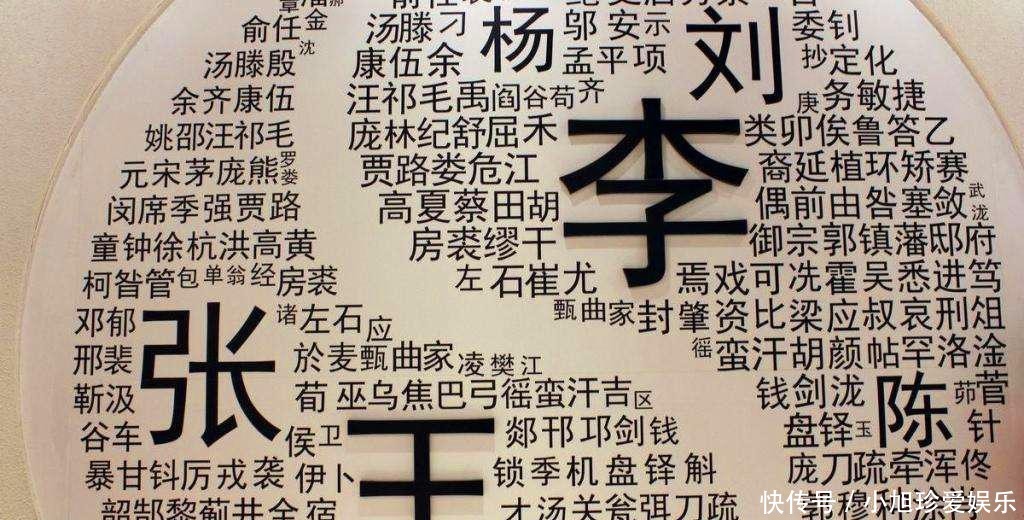 俞任金
沈
汤滕殷
余齐康伍
姚邵汪祁毛
元宋茅庞熊罗娄
闵席季强贾路
童钟徐杭洪高黄
柯昝管包单翁经房裘
汤滕刁
康伍余
杨
邬安示
孟平项
刘
委钊
抄定化
汪祁毛禹阎谷荀齐
庞林纪舒屈禾
贾路娄危江
高夏蔡田胡
房裘缪干
左石崔尤
甄曲家封
李
庚务敏捷
类卯俟鲁答乙
裔延植环矫赛
偶前由昝塞敛武泷
御宗郭镇藩邸府
焉戏可冼霍吴悉进笃
肇资比梁应叔哀刑俎
徭蛮汗胡颜帖罕洛淦
邓郁
邢裴
靳汲
谷车
张
诸左石应
於麦甄曲家凌樊江
荀巫乌焦巴弓徭蛮汗吉区
侯卫
暴甘钭厉戎袭伊卜
韶郜黎蓟井全宿
王
郯邗邛剑钱
锁季机盘铎斛
才汤关瓮弭刀疏
钱剑泷
陈
茆菅
盘铎玉
针
庞刀疏牵浑佟
快传号/小旭珍爱娱乐